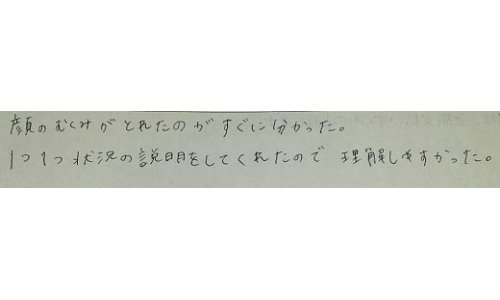 顔のむくみがとれたのがすぐに分かった。
1つ1つ状況の説明をしてくれたので 理解しやすかった。